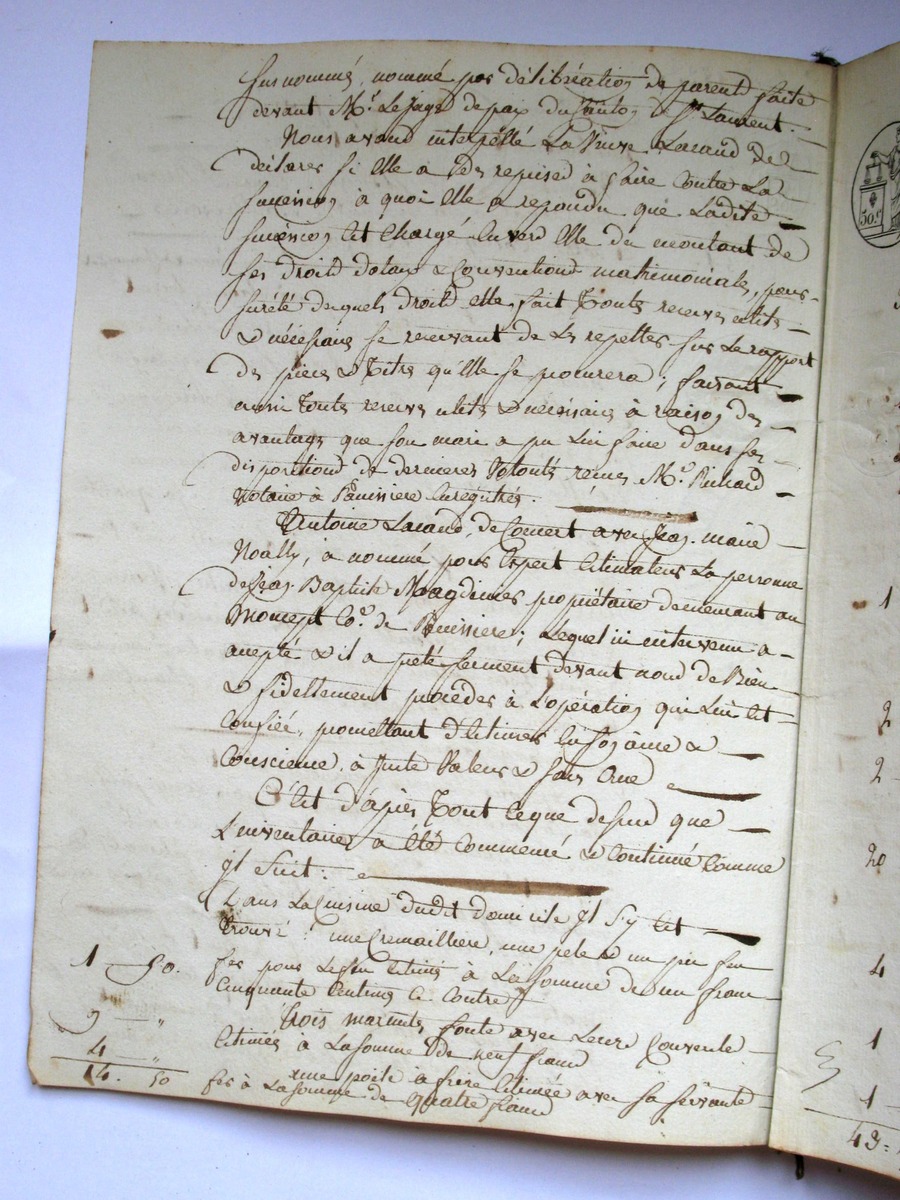 susnommé, nommé par délibération de parent faite
devant Mr. Le juge de paix du Canton de St. Laurent.
Nous avons interpellé La Veuve Lacand de
déclarer si Elle a des reprises à faire Contre La
succession à quoi Elle a repondu que Ladite
succession Est Chargé Envers Elle du montant de
ses droits dotaux & Conventions matrimoniales, pour
sureté desquels droits elle fait Toutes reserves utiles
& nécessaires se reservant de Les repetter sur Le rapport
des pieces & Titres qu'Elle se procurera ; faisant
aussi Toutes reserves utiles & necessaires à raison des
avantages que son mari a pu Lui faire dans ses
dispositions de dernieres Volontés reçues Me. Richard
Notaire à Panissiere Enregistrés.
Antoine Lacand, de Concert avec Jean marie
Noally, à nommé pour Expert Estimateur La personne
de Jean Baptiste Magdinier propriétaire demeurant au
Co.e de Panissiere ; Lequel ici intervenu a
accepté & il a preté serment devant nous de Bien
& fidellement procéder à L'opération qui Lui Est
Confiée, promettant d'Estimer En son âme &
Conscience, à juste Valeur & sans Crue
C'Est d'après Tout Ce que dessus que
L'inventaire a été Commencé & Continué Comme
Il Suit :
Dans La Cuisine dudit domicile Il s'y Est
Trouvé : une Cremailliere, une pele & un peu
fer pour Le feu Estimés à La Somme de un franc
Cinquante Centimes Ci Contre
1 — 50.
Trois marmites fonte avec Leurs Couvercle
Estimées à La Somme de neuf francs
9 — "
une poile à frire Estimée avec sa servante
fer à La Somme de quatre francs
4 — "
14. 50
50.c
1
2
2
20
4
1
1
43